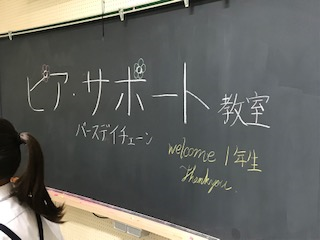 ピア・サポート 教室
バースデイチェーン
welcome 1年生
Thankyou.